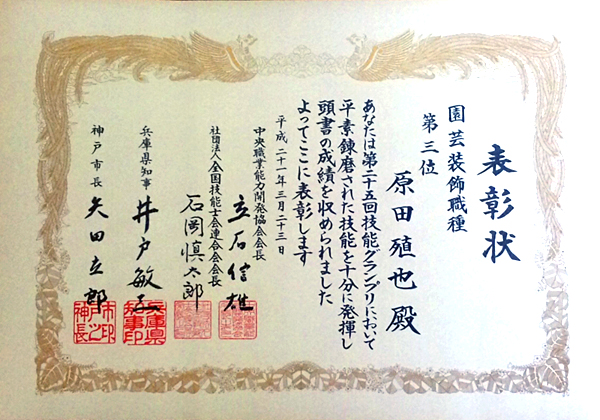 表彰状
園芸装飾職種
第三位
原田殖也殿
あなたは第二十五回技能グランプリにおいて
平素錬磨された技能を十分に発揮し
頭書の成績を収められました
よってここに表彰します
平成二十一年三月二十三日
中央職業能力開発協会会長
立石信雄
社団法人全国技能士会連合会会長
石岡慎太郎
兵庫県知事
井戸敏三
兵庫県知事印
神戸市長
矢田立郎
神戸市長之印